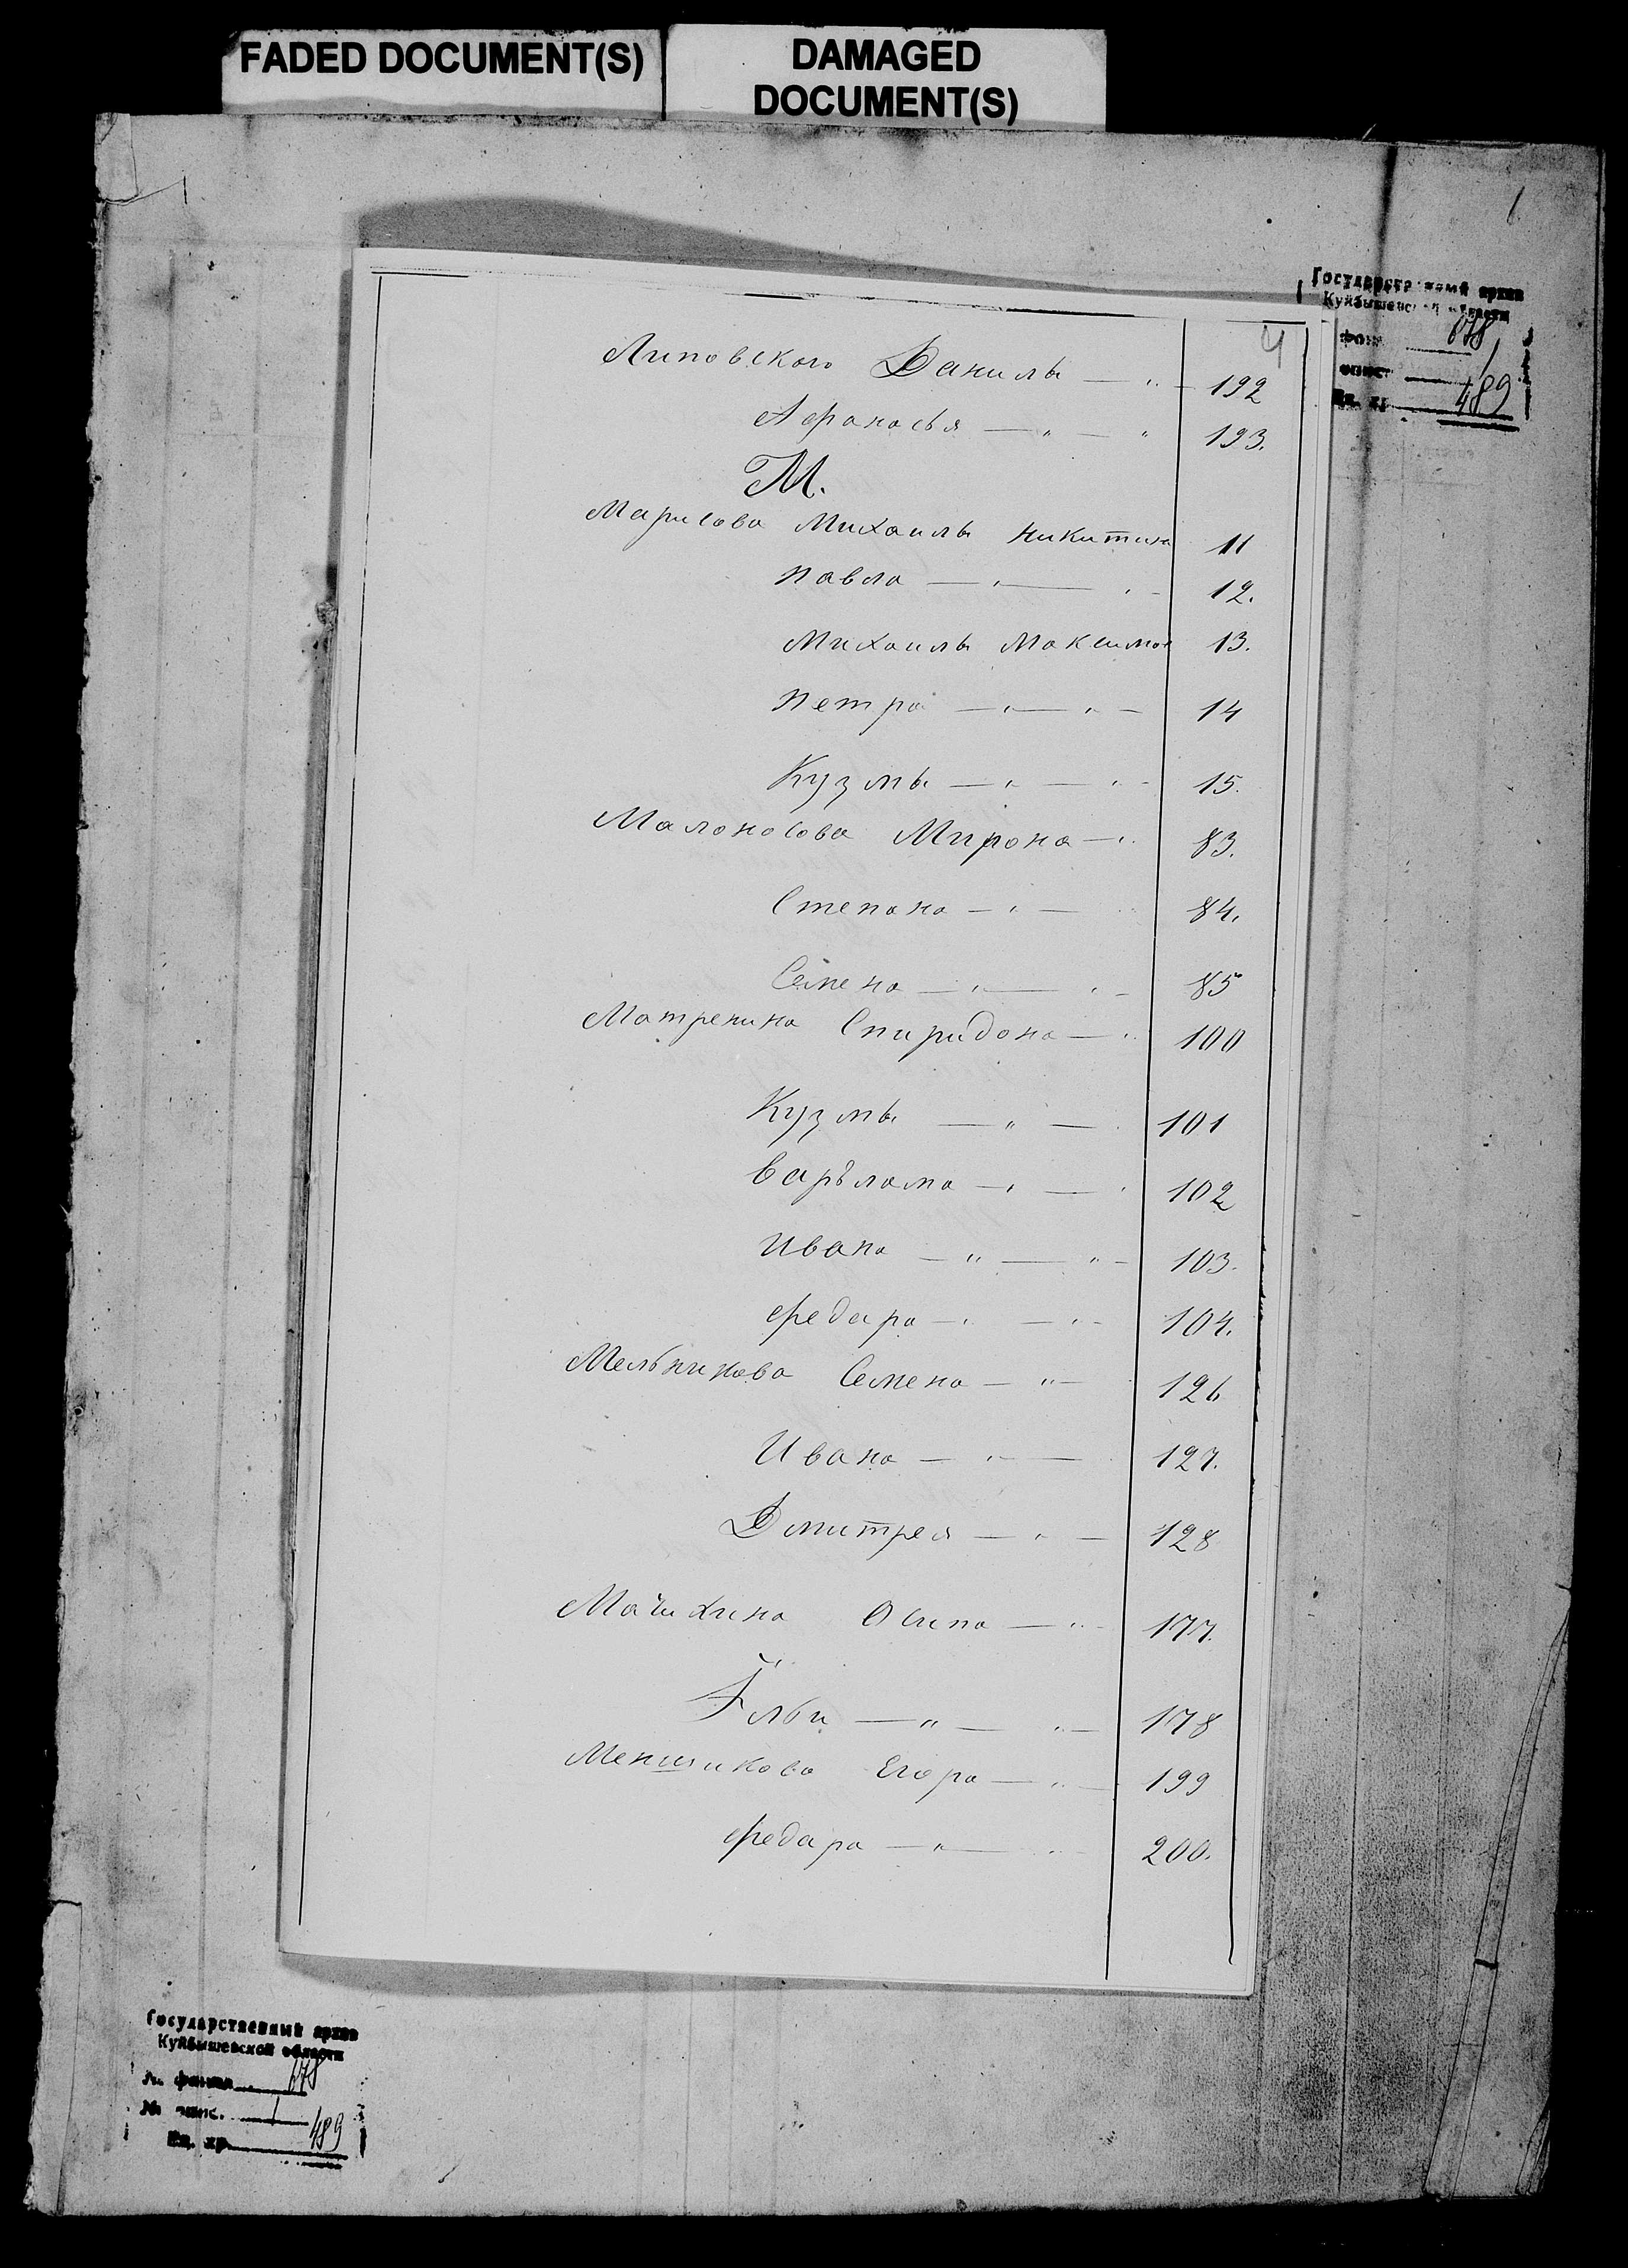 FADED DOCUMENT(S)
DAMAGED
DOCUMENT(S)
1
Государственный архив
Куйбышевской области
фонд 678
опис. 1
Ед. хр. 489
4
Липовского Данилы — " — 192
Афонасья — " — " 193.
М.
Марисова Михаилы Никитина 11
Павла — " — " — 12.
Михаилы Максимов 13.
Петра — " — " — 14
Кузмы — " — " — 15.
Малоносова Мирона — " 83.
Степана — " — 84.
Семена — " — " — 85
Матренина Спиридона — " 100
Кузмы — " — 101
Варълама — " — " 102
Ивана — " — " — 103.
Федара — " — " — 104.
Мельникова Семена — " — 126
Ивана — " — 127.
Дмитрея — " — 128
Мачихина Осипа — " — 177.
Ильи — " — " — 178
Меншикова Егора — " — 199
Федара — " — " — 200.
Государственный архив
Куйбышевской области
№ фонда 678
№ опис. 1
Ед. хр. 489